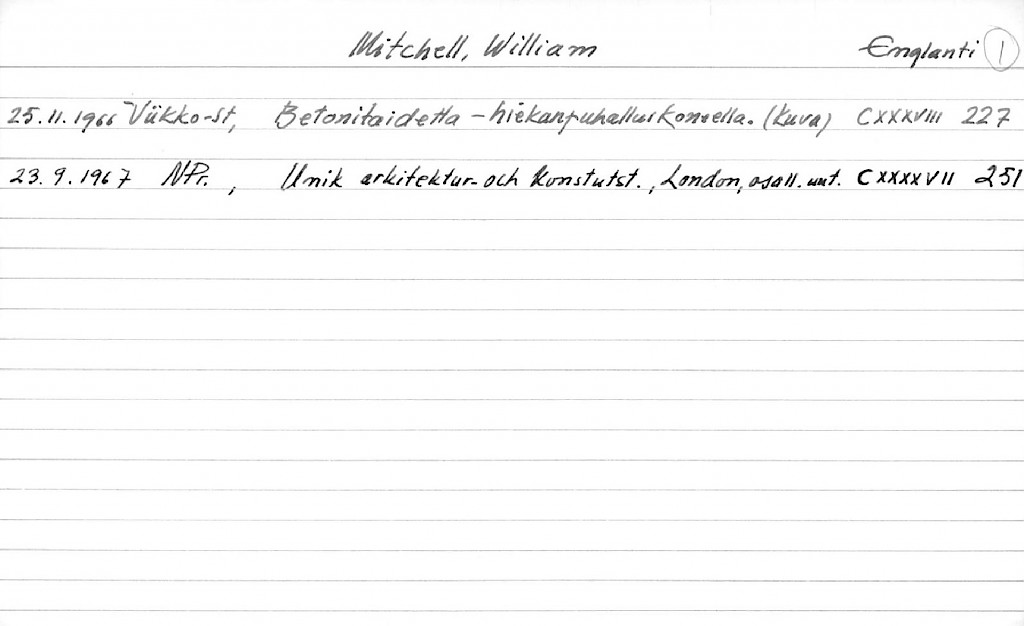 Mitchell, William Englanti 1
25.11.1966 Viikko-st, Betonitaidetta - hiekanpuhalluskoneella. (Kuva) CXXXVIII 227
23.9.1967 NPr., Unik arkitektur- och konstutst., London, osall. mt. CXXXXVII 251